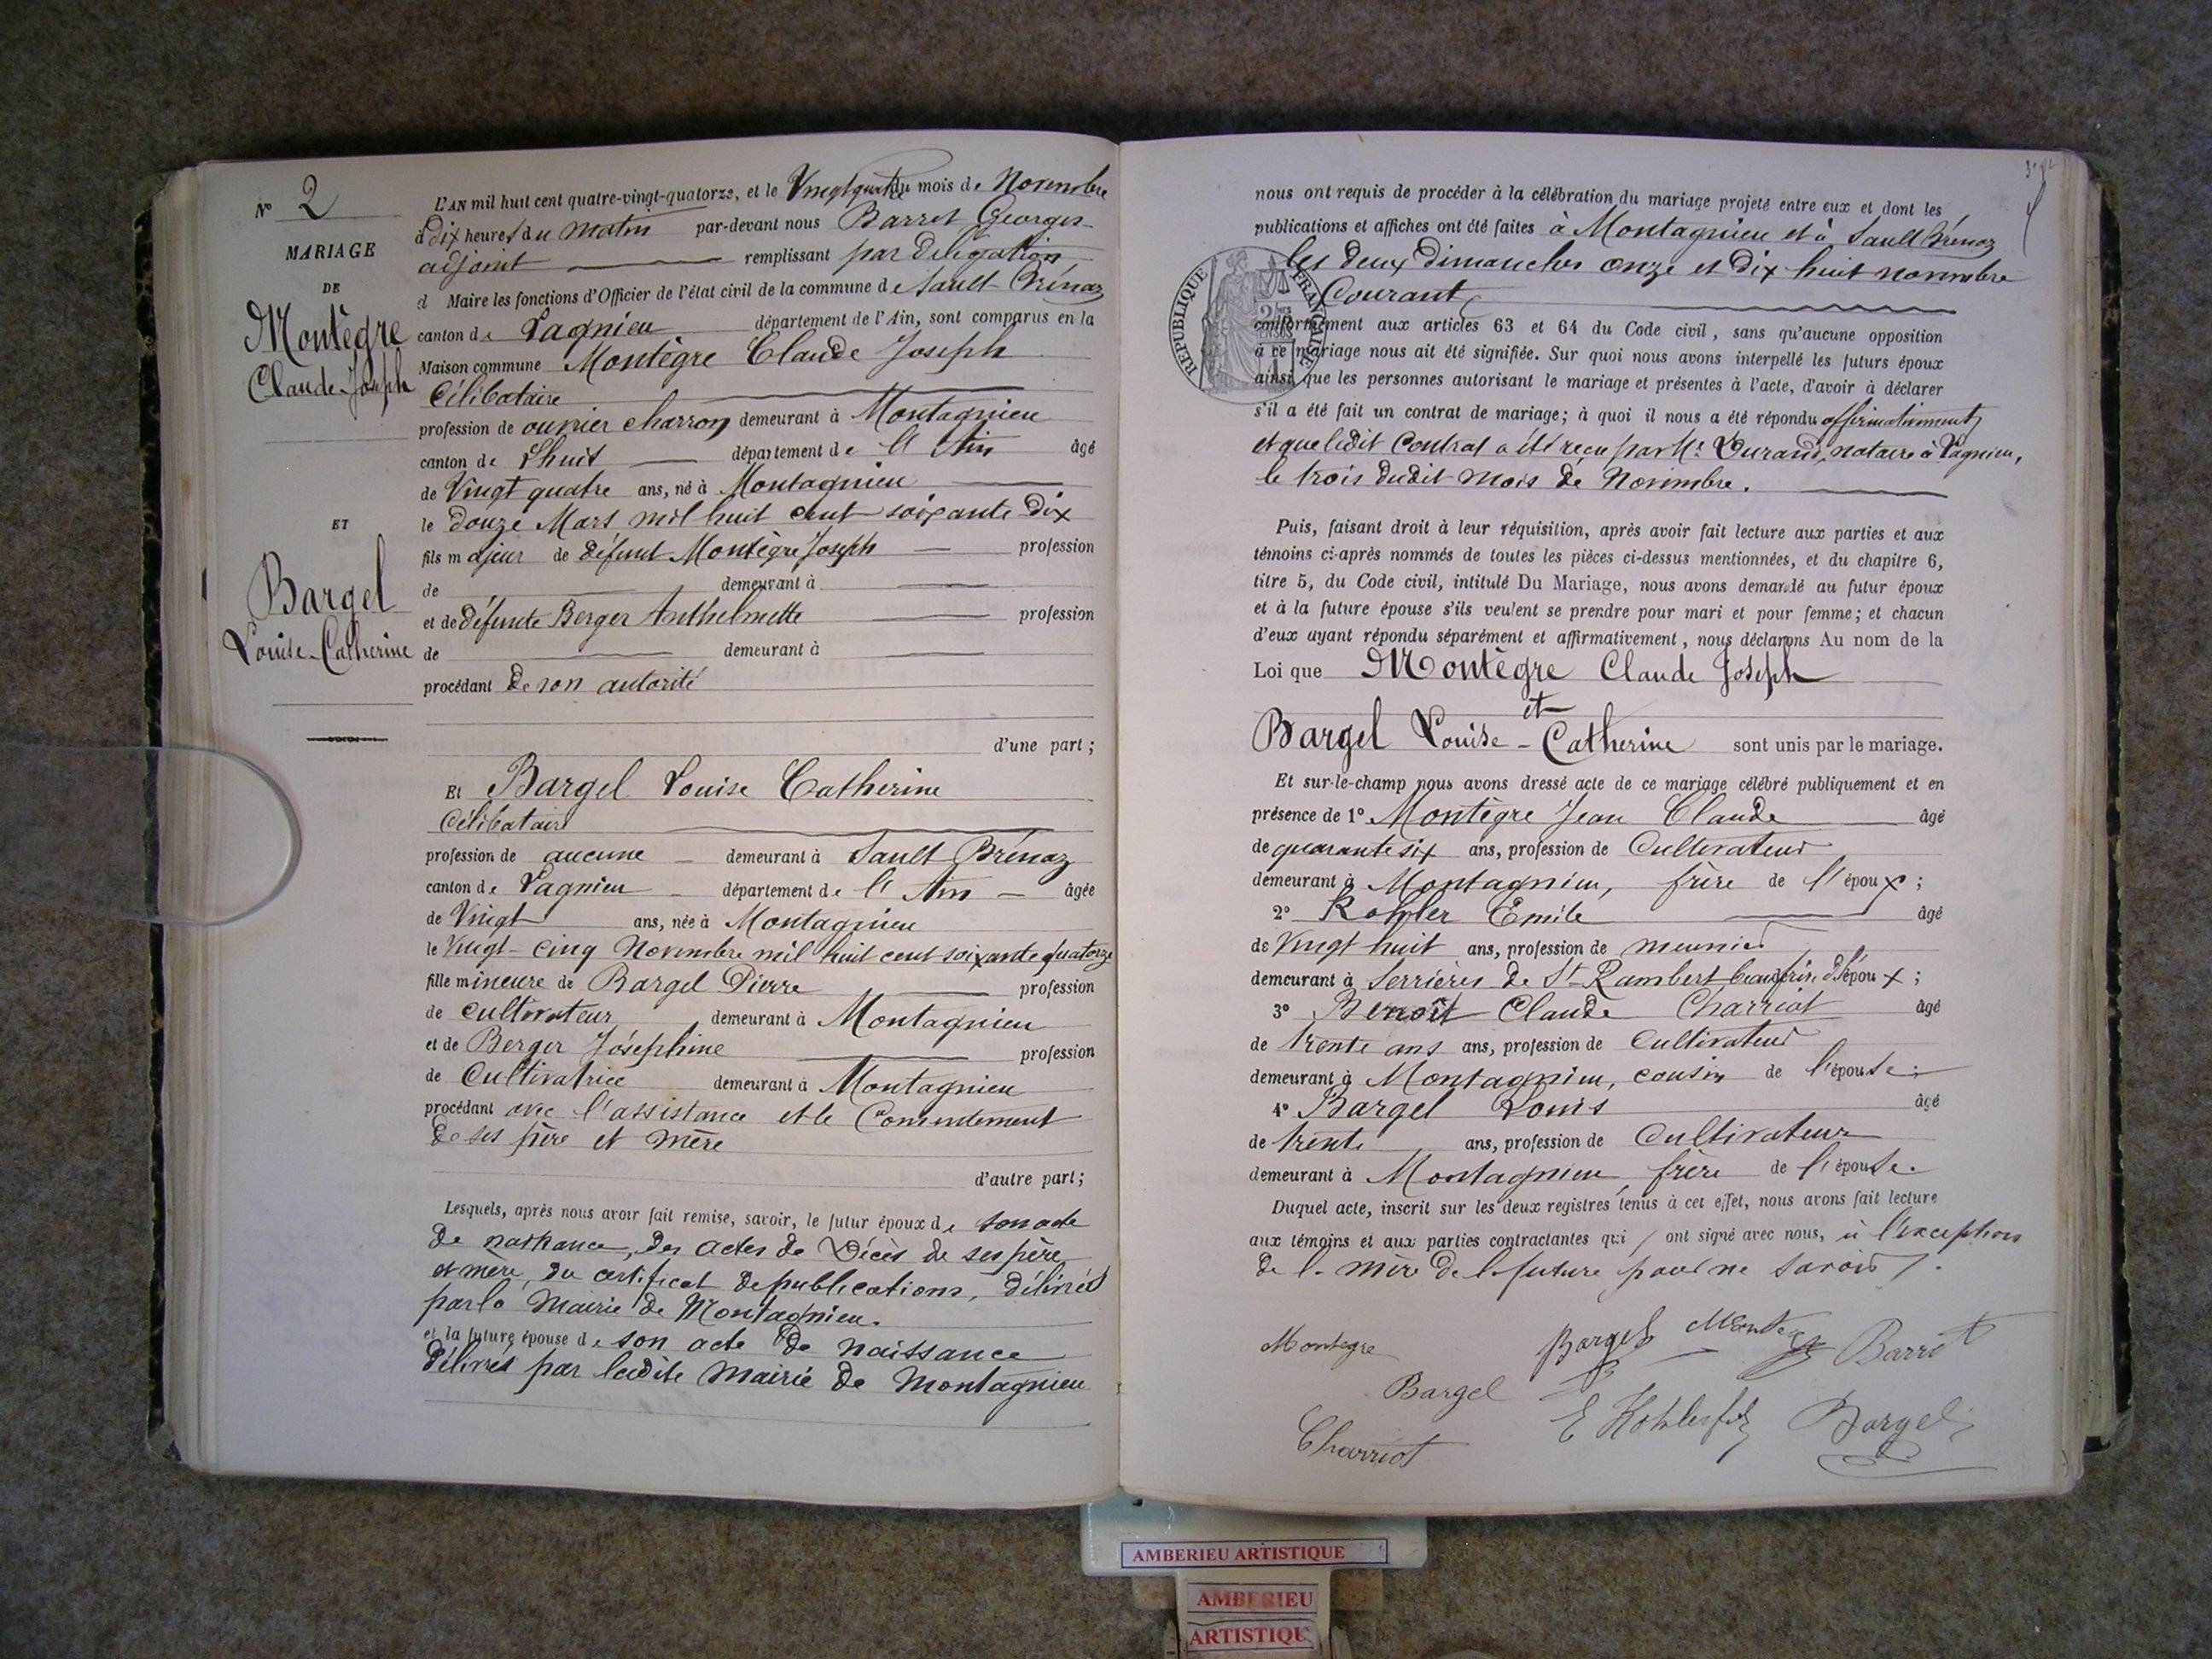 N° 2
MARIAGE
DE
Montègre
Claude-Joseph
ET
Bargel
Louise-Catherine
L'AN mil huit cent quatre-vingt-quatorze, et le Vingt quatre du mois de Novembre
à dix heures du matin par-devant nous Barret Georges
adjoint remplissant par Délégation
d Maire les fonctions d'Officier de l'état civil de la commune de Sault-Brénaz
canton de Lagnieu département de l'Ain, sont comparus en la
Maison commune Montègre Claude Joseph
Célibataire
profession de ouvrier charron demeurant à Montagnieu
canton de Lhuis département de l'Ain âgé
de Vingt quatre ans, né à Montagnieu
le douze Mars mil huit cent soixante dix
fils majeur de défunt Montègre Joseph profession
de demeurant à
et de défunte Berger Anthelmette profession
de demeurant à
procédant de son autorité
d'une part;
Et Bargel Louise Catherine
Célibataire
profession de aucune demeurant à Sault-Brénaz
canton de Lagnieu département de l'Ain âgée
de Vingt ans, née à Montagnieu
le Vingt-cinq Novembre mil huit cent soixante quatorze
fille mineure de Bargel Pierre profession
de cultivateur demeurant à Montagnieu
et de Berger Joséphine profession
de Cultivatrice demeurant à Montagnieu
procédant avec l'assistance et le Consentement
de ses père et mère
d'autre part;
Lesquels, après nous avoir fait remise, savoir, le futur époux de son acte
de naissance, des actes de Décès de ses père
et mère, du certificat de publications, délivrés
par la Mairie de Montagnieu.
et la future épouse de son acte de naissance
délivrés par ladite Mairie de Montagnieu
nous ont requis de procéder à la célébration du mariage projeté entre eux et dont les
publications et affiches ont été faites à Montagnieu et à Sault Brénaz
les deux dimanches onze et dix huit novembre
Courant
REPUBLIQUE FRANÇAISE
conformément aux articles 63 et 64 du Code civil, sans qu'aucune opposition
à ce mariage nous ait été signifiée. Sur quoi nous avons interpellé les futurs époux
ainsi que les personnes autorisant le mariage et présentes à l'acte, d'avoir à déclarer
s'il a été fait un contrat de mariage; à quoi il nous a été répondu affirmativement
et que ledit Contrat a été reçu par Me Durand, notaire à Lagnieu,
le trois dudit mois de Novembre.
Puis, faisant droit à leur réquisition, après avoir fait lecture aux parties et aux
témoins ci-après nommés de toutes les pièces ci-dessus mentionnées, et du chapitre 6,
titre 5, du Code civil, intitulé Du Mariage, nous avons demandé au futur époux
et à la future épouse s'ils veulent se prendre pour mari et pour femme; et chacun
d'eux ayant répondu séparément et affirmativement, nous déclarons Au nom de la
Loi que Montègre Claude Joseph
et
Bargel Louise-Catherine sont unis par le mariage.
Et sur-le-champ nous avons dressé acte de ce mariage célébré publiquement et en
présence de 1° Montègre Jean Claude âgé
de quarante six ans, profession de Cultivateur
demeurant à Montagnieu, frère de l'époux;
2° Kohler Emile âgé
de Vingt huit ans, profession de meunier
demeurant à Serrières de St Rambert beaufrère de l'époux;
3° Benoît Claude Charriot âgé
de trente ans ans, profession de Cultivateur
demeurant à Montagnieu, cousin de l'épouse;
4° Bargel Louis âgé
de trente ans, profession de Cultivateur
demeurant à Montagnieu, frère de l'épouse.
Duquel acte, inscrit sur les deux registres tenus à cet effet, nous avons fait lecture
aux témoins et aux parties contractantes qui ont signé avec nous, à l'exception
de la mère de la future pour ne savoir.
Montegre Bargel Barret
Bargel E Kohler fils Bargel
Charriot
AMBERIEU ARTISTIQUE
AMBERIEU
ARTISTIQU